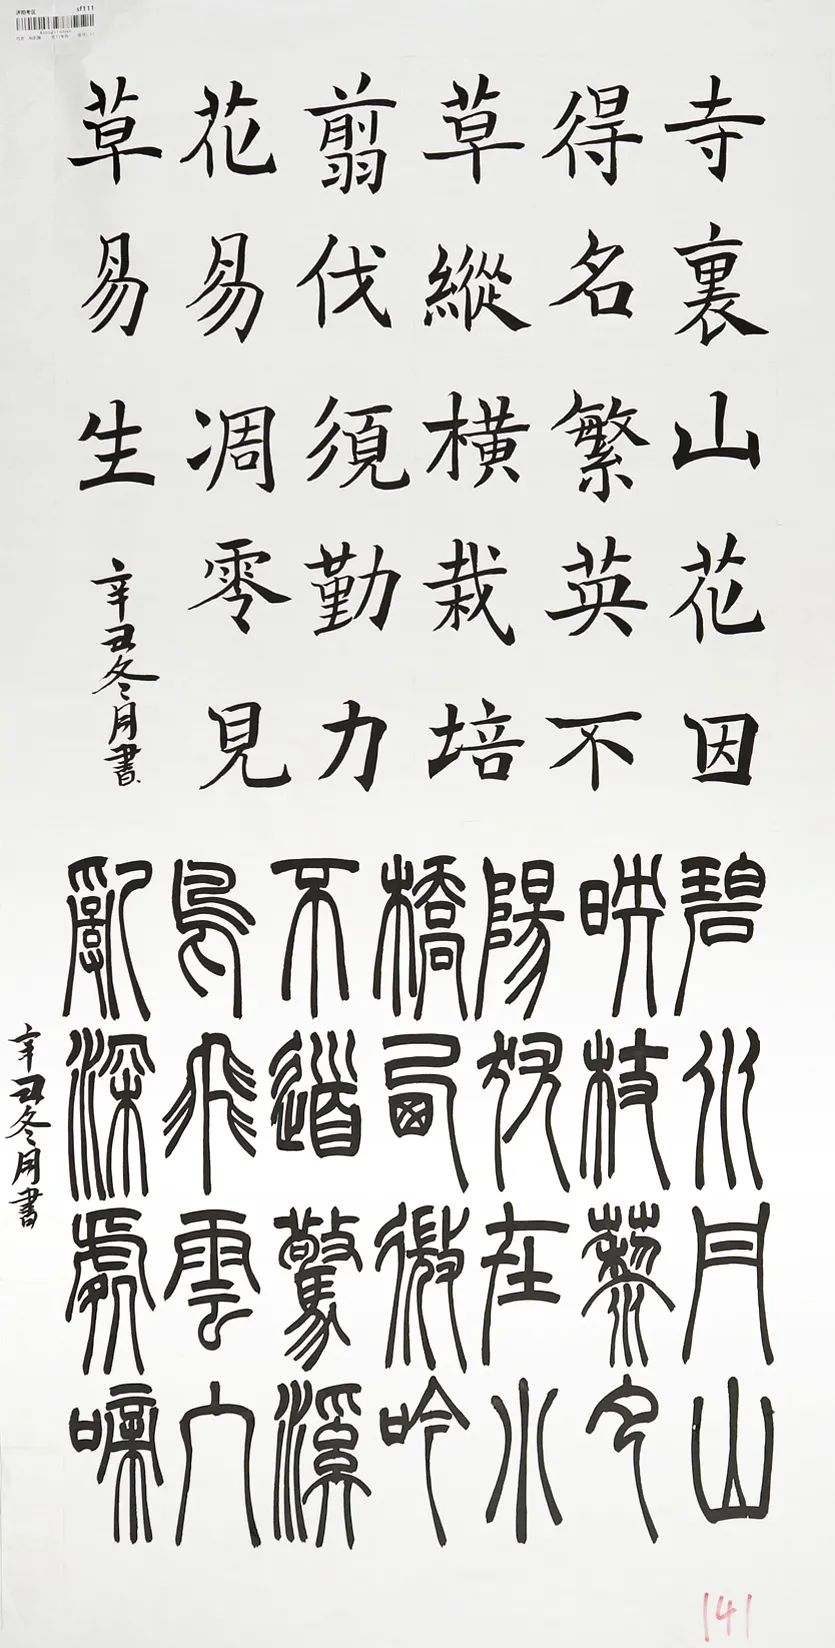 寺裏山花因
得名繁英不
草縱橫栽培
翦伐須勤力
花易凋零見
草易生
辛丑冬月書
碧月山
映枝藜夕
陽在水
橋西微吟
不道驚溪
鳥飛雲入
亂深處啼
辛丑冬月書
141
sf111